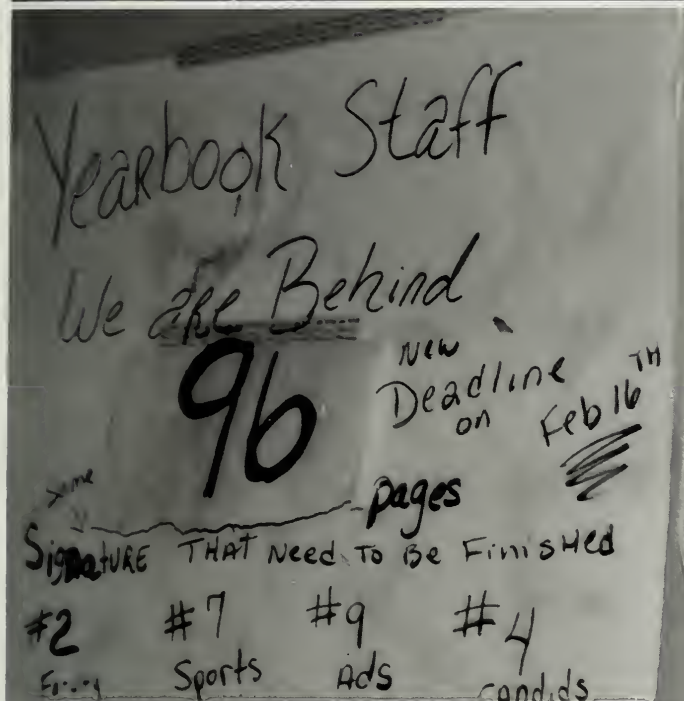 Yearbook Staff
We are Behind
96 pages
New
Deadline
on Feb 16TH
Some
Signature THAT Need To Be Finished
#2 #7 #9 #4
Sports Ads Candids